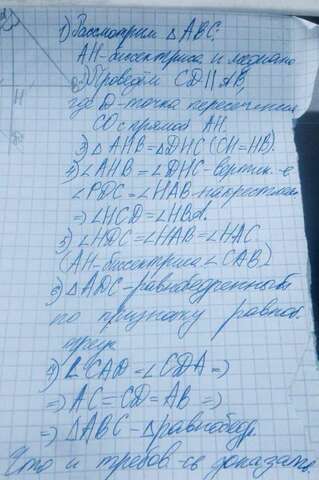 1) Рассмотрим △ABC:
AH-биссектриса и медиана
2) Проведём CD∥AB,
где D-точка пересечения
CD с прямой AH.
3) △AHB = △DHC (CH=HB).
4) ∠AHB = ∠DHC-вертик-е
∠PDC = ∠HAB-накрестлеж
⇒ ∠HCD = ∠HBA.
5) ∠HDC = ∠HAB = ∠HAC
(AH-биссектриса ∠CAB)
6) △ADC-равнобедренный
по признаку равноб.
треуг.
7) ∠CAD = ∠CDA ⇒
⇒ AC = CD = AB ⇒
⇒ △ABC - △равнобедр.
Что и требов-сь доказать.
H